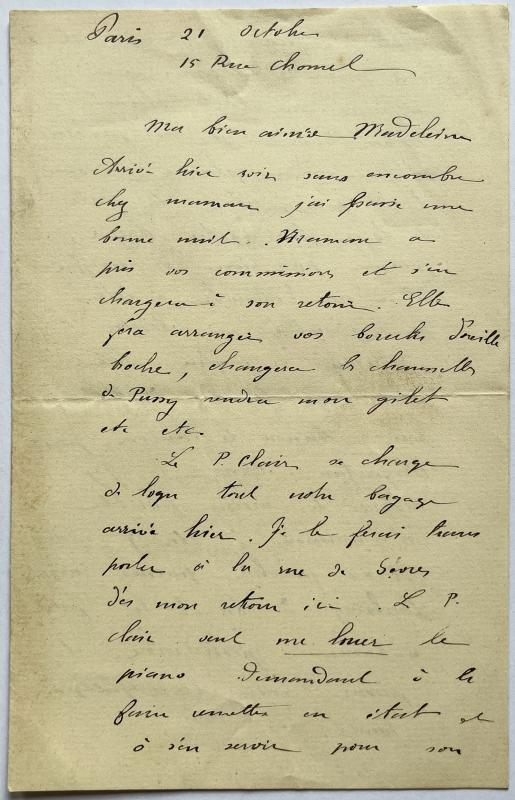 Paris 21 octobre
15 Rue Chomel
Ma bien aimée Madeleine
Arrivé hier soir sans encombre
chez maman j'ai passé une
bonne nuit. Maman a
pris vos commissions et s'en
chargera à son retour. Elle
fera arranger vos boucles d'oreille
broche, changera les chaussettes
de Pussy rendra mon gilet
etc etc.
Le P. Clair se charge
de loger tout notre bagage
arrivé hier. Je le ferai trans
porter à la rue de Sèvres
dès mon retour ici. Le P.
Clair veut me louer le
piano demandant à le
faire remettre en état et
à s'en servir pour son